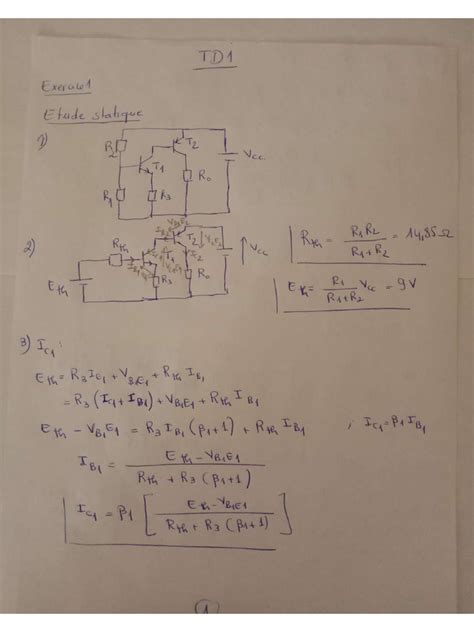 TD1
Exercice 1
Etude statique
1)
R2
T1
T2
Vcc
R1
R3
R0
2)
Rth
T2
T1
Eth
R3
R0
Vcc
Rth = R1 R2 / (R1 + R2) = 14,85Ω
Eth = R1 / (R1 + R2) Vcc = 9V
3) IC1 :
Eth = R3 IE1 + VB1E1 + Rth IB1
= R3 (IC1 + IB1) + VB1E1 + Rth IB1
Eth - VB1E1 = R3 IB1 (β1+1) + Rth IB1 ; IC1 = β1 IB1
IB1 = (Eth - VB1E1) / (Rth + R3 (β1+1))
IC1 = β1 [ (Eth - VB1E1) / (Rth + R3 (β1+1)) ]
1